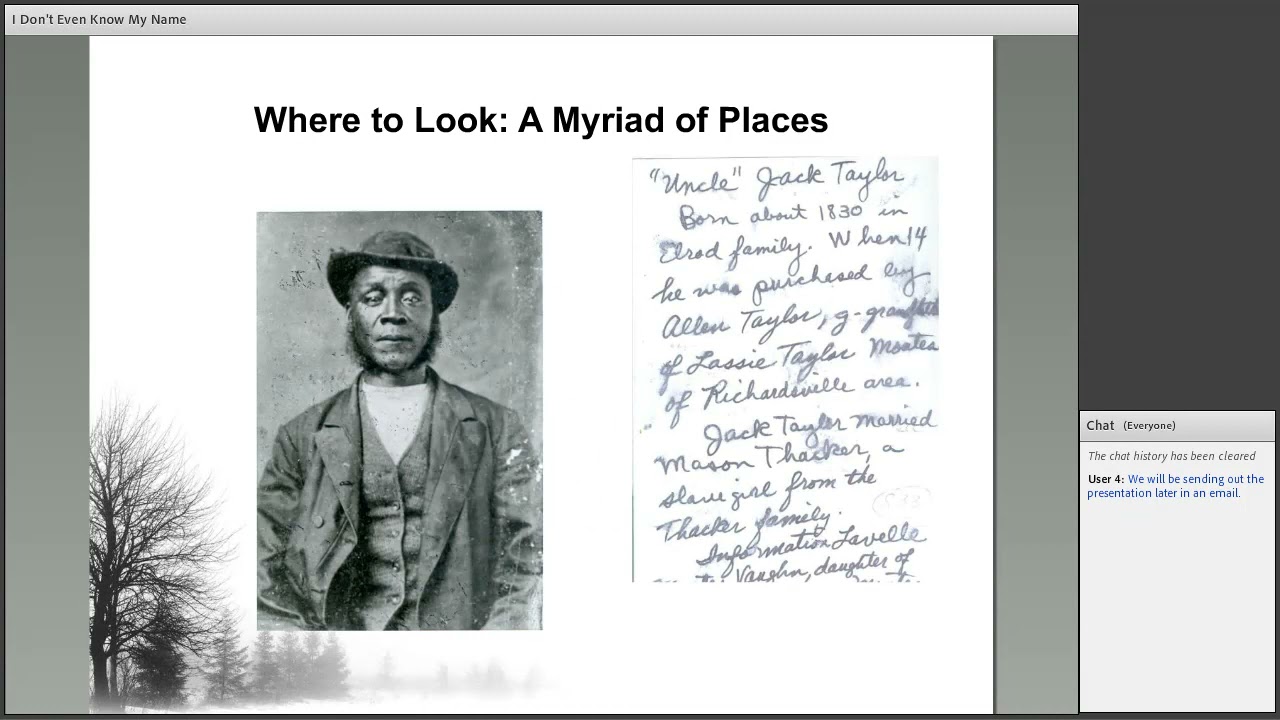 I Don't Even Know My Name
Where to Look: A Myriad of Places
"Uncle" Jack Taylor
Born about 1830 in
Elrod family. When 14
he was purchased by
Allen Taylor, g-
of Lassie Taylor
of Richardsville area.
Jack Taylor married
Mason Thacker, a
slave girl from the
Thacker family.
Information Lavelle
Vaughn, daughter of
Chat (Everyone)
The chat history has been cleared
User 4: We will be sending out the
presentation later in an email.